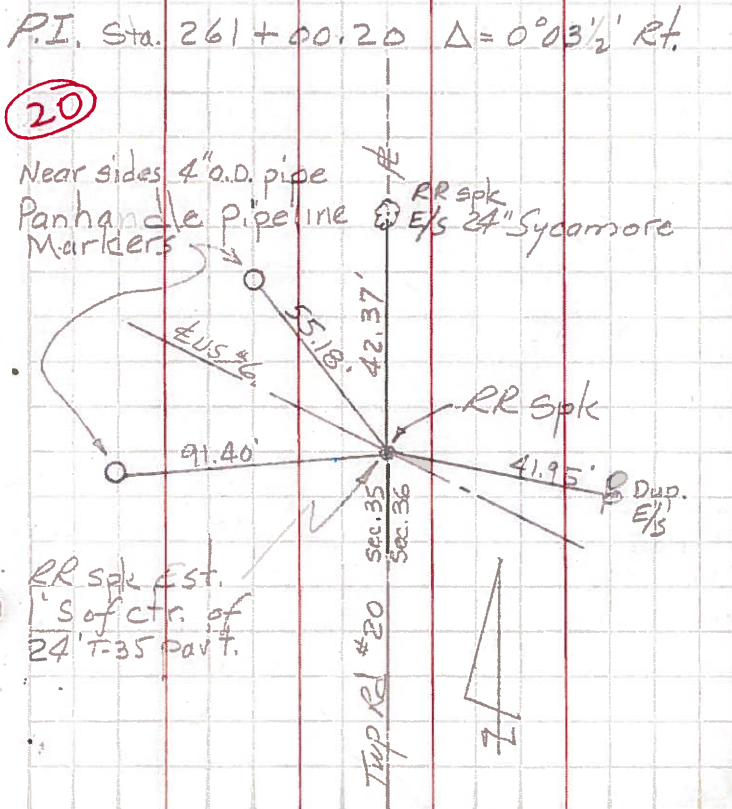 P.I. Sta. 261+00.20 Δ = 0°03½' Rt.
20
Near sides 4" O.D. pipe
Panhandle pipeline
Markers
RR spk
E/S 24" Sycamore
42.37'
55.18'
℄ US #6
RR Spk
91.40'
41.95'
Dup.
E/S
Sec. 35
Sec. 36
RR spk Est.
1' S of ctr. of
24' T-35 pav't.
Twp Rd #20